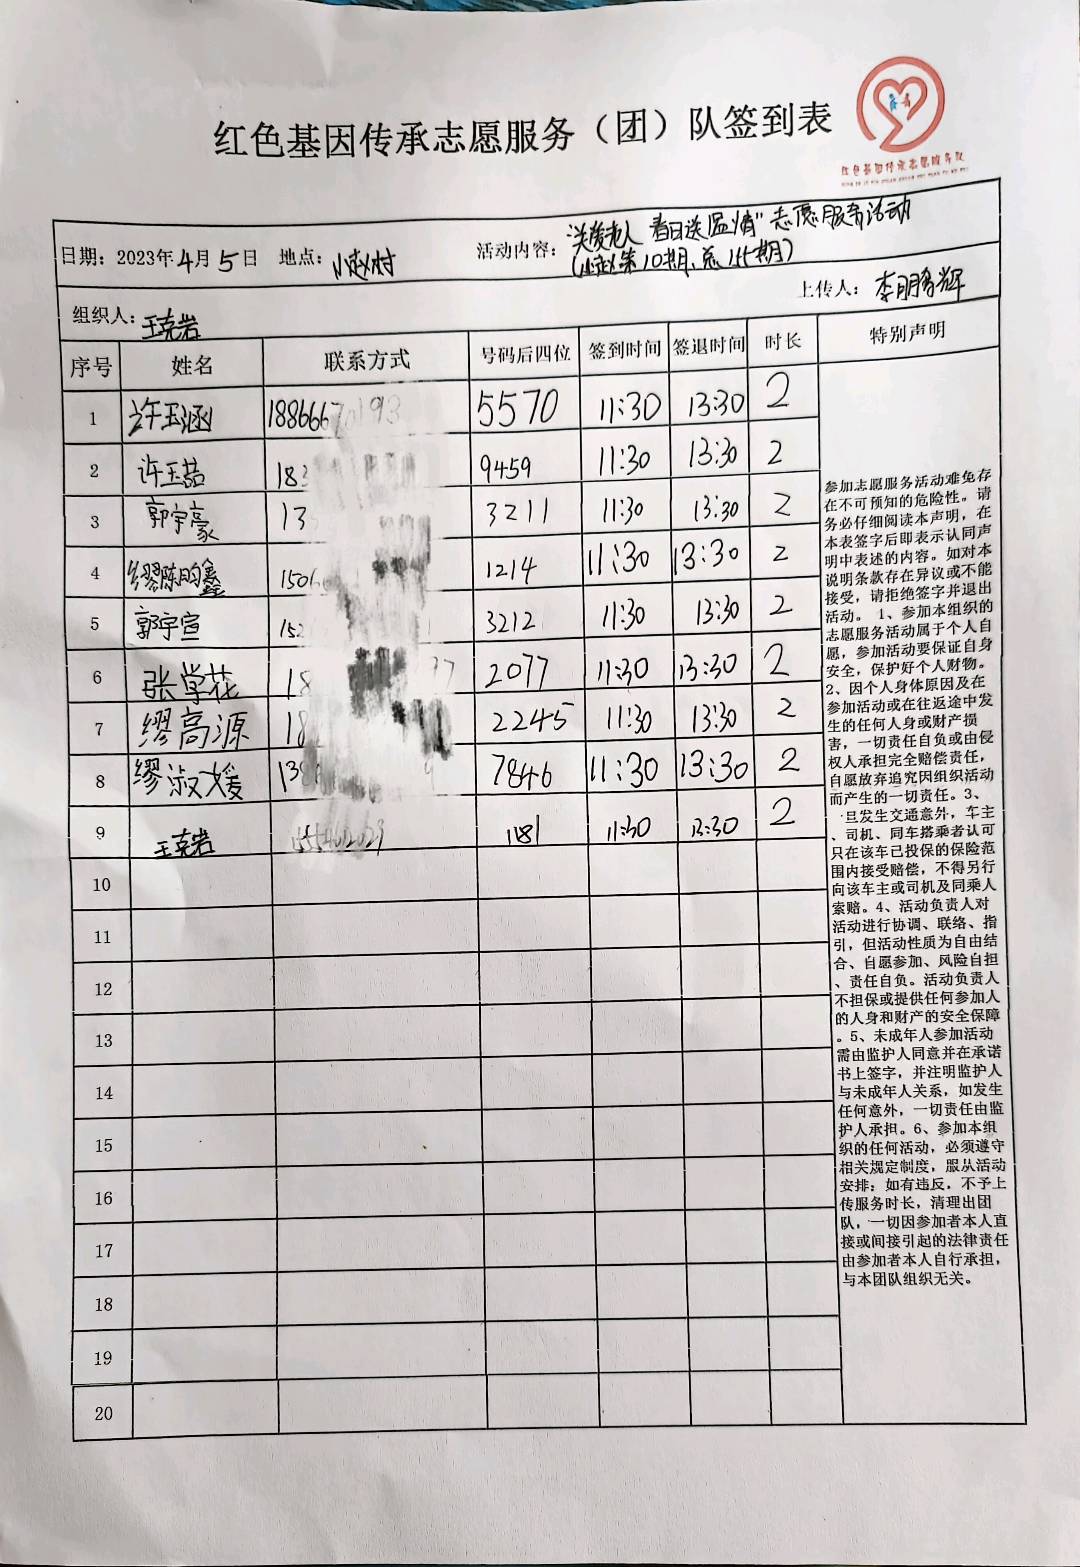 红色基因传承志愿服务（团）队签到表
红色基因传承志愿服务队
日期：2023年4月5日 地点：小赵村 活动内容：“关爱老人 春日送温情”志愿服务活动
（小赵第10期、总155期）
组织人：王克岩 上传人：李朋辉
序号 姓名 联系方式 号码后四位 签到时间 签退时间 时长 特别声明
1 许玉涵 5570 11:30 13:30 2
2 许玉喆 9459 11:30 13:30 2
3 郭宇豪 3211 11:30 13:30 2
4 缪陈昀鑫 1214 11:30 13:30 2
5 郭宇宣 3212 11:30 13:30 2
6 张学花 2077 11:30 13:30 2
7 缪高源 2245 11:30 13:30 2
8 缪淑媛 7846 11:30 13:30 2
9 王克岩 1181 11:30 13:30 2
10
11
12
13
14
15
16
17
18
19
20
参加志愿服务活动难免存
在不可预知的危险性。请
务必仔细阅读本声明，在
本表签字后即表示认同声
明中表述的内容。如对本
说明条款存在异议或不能
接受，请拒绝签字并退出
活动。 1、参加本组织的
志愿服务活动属于个人自
愿，参加活动要保证自身
安全，保护好个人财物。
2、因个人身体原因及在
参加活动或在往返途中发
生的任何人身或财产损
害，一切责任自负或由侵
权人承担完全赔偿责任，
自愿放弃追究因组织活动
而产生的一切责任。3、
旦发生交通意外，车主
、司机、同车搭乘者认可
只在该车已投保的保险范
围内接受赔偿，不得另行
向该车主或司机及同乘人
索赔。4、活动负责人对
活动进行协调、联络、指
引，但活动性质为自由结
合、自愿参加、风险自担
、责任自负。活动负责人
不担保或提供任何参加人
的人身和财产的安全保障
。5、未成年人参加活动
需由监护人同意并在承诺
书上签字，并注明监护人
与未成年人关系，如发生
任何意外，一切责任由监
护人承担。6、参加本组
织的任何活动，必须遵守
相关规定制度，服从活动
安排；如有违反，不予上
传服务时长，清理出团
队，一切因参加者本人直
接或间接引起的法律责任
由参加者本人自行承担，
与本团队组织无关。